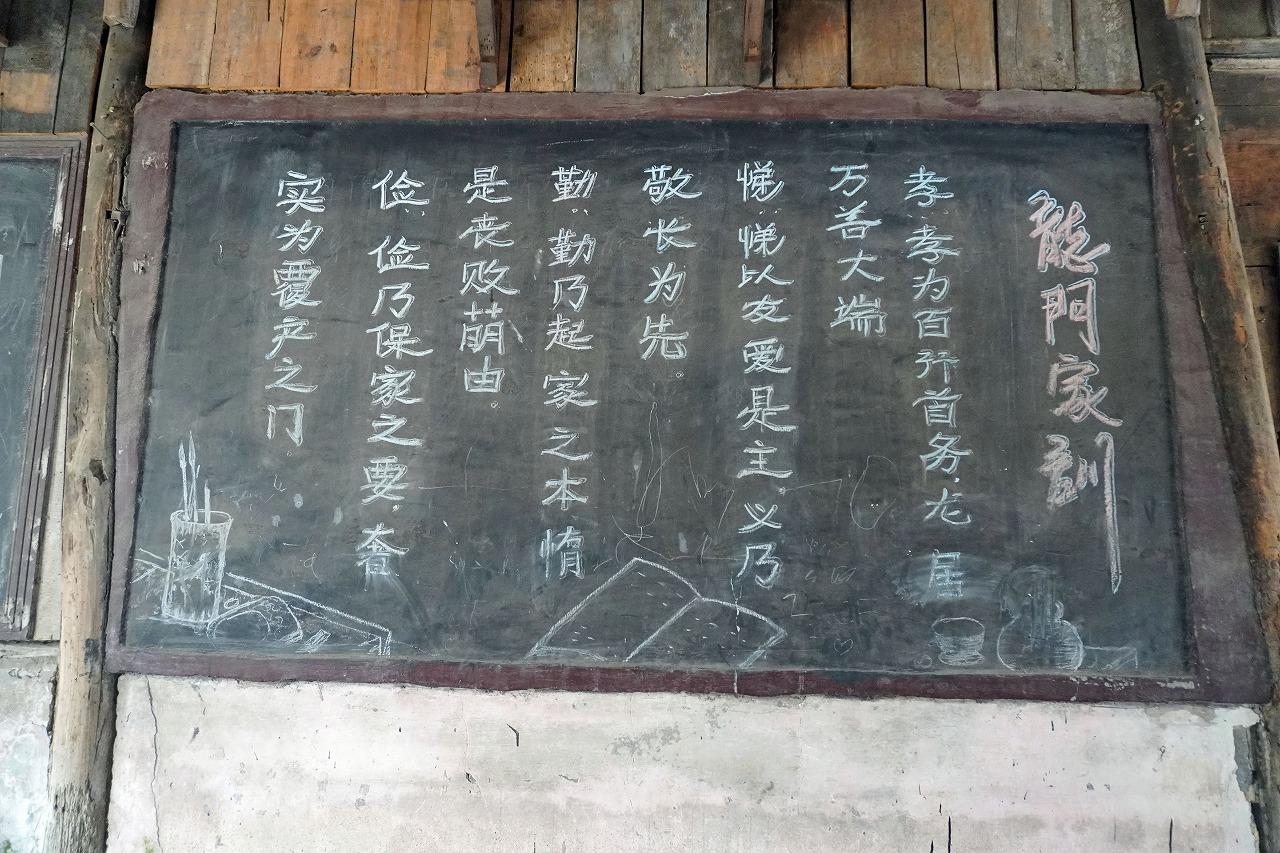 龍門家訓
孝:孝为百行首务,尤居
万善大端
悌:悌以友爱是主,义乃
敬长为先。
勤:勤乃起家之本惰
是丧败萌由。
俭:俭乃保家之要,奢
实为覆产之门